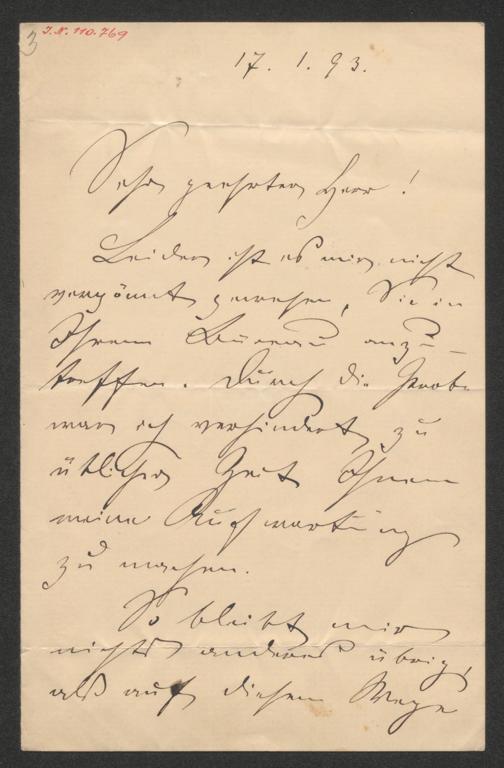 3
J.N. 110.769
17. 1. 93.
Sehr geehrter Herr!
Leider ist es mir nicht
vergönnt gewesen, Sie in
Ihrem Bureau anzu-
treffen. Durch die Probe
war ich verhindert zu
üblicher Zeit Ihnen
meine Aufwartung
zu machen.
So bleibt mir
nichts anderes übrig,
als auf diesem Wege